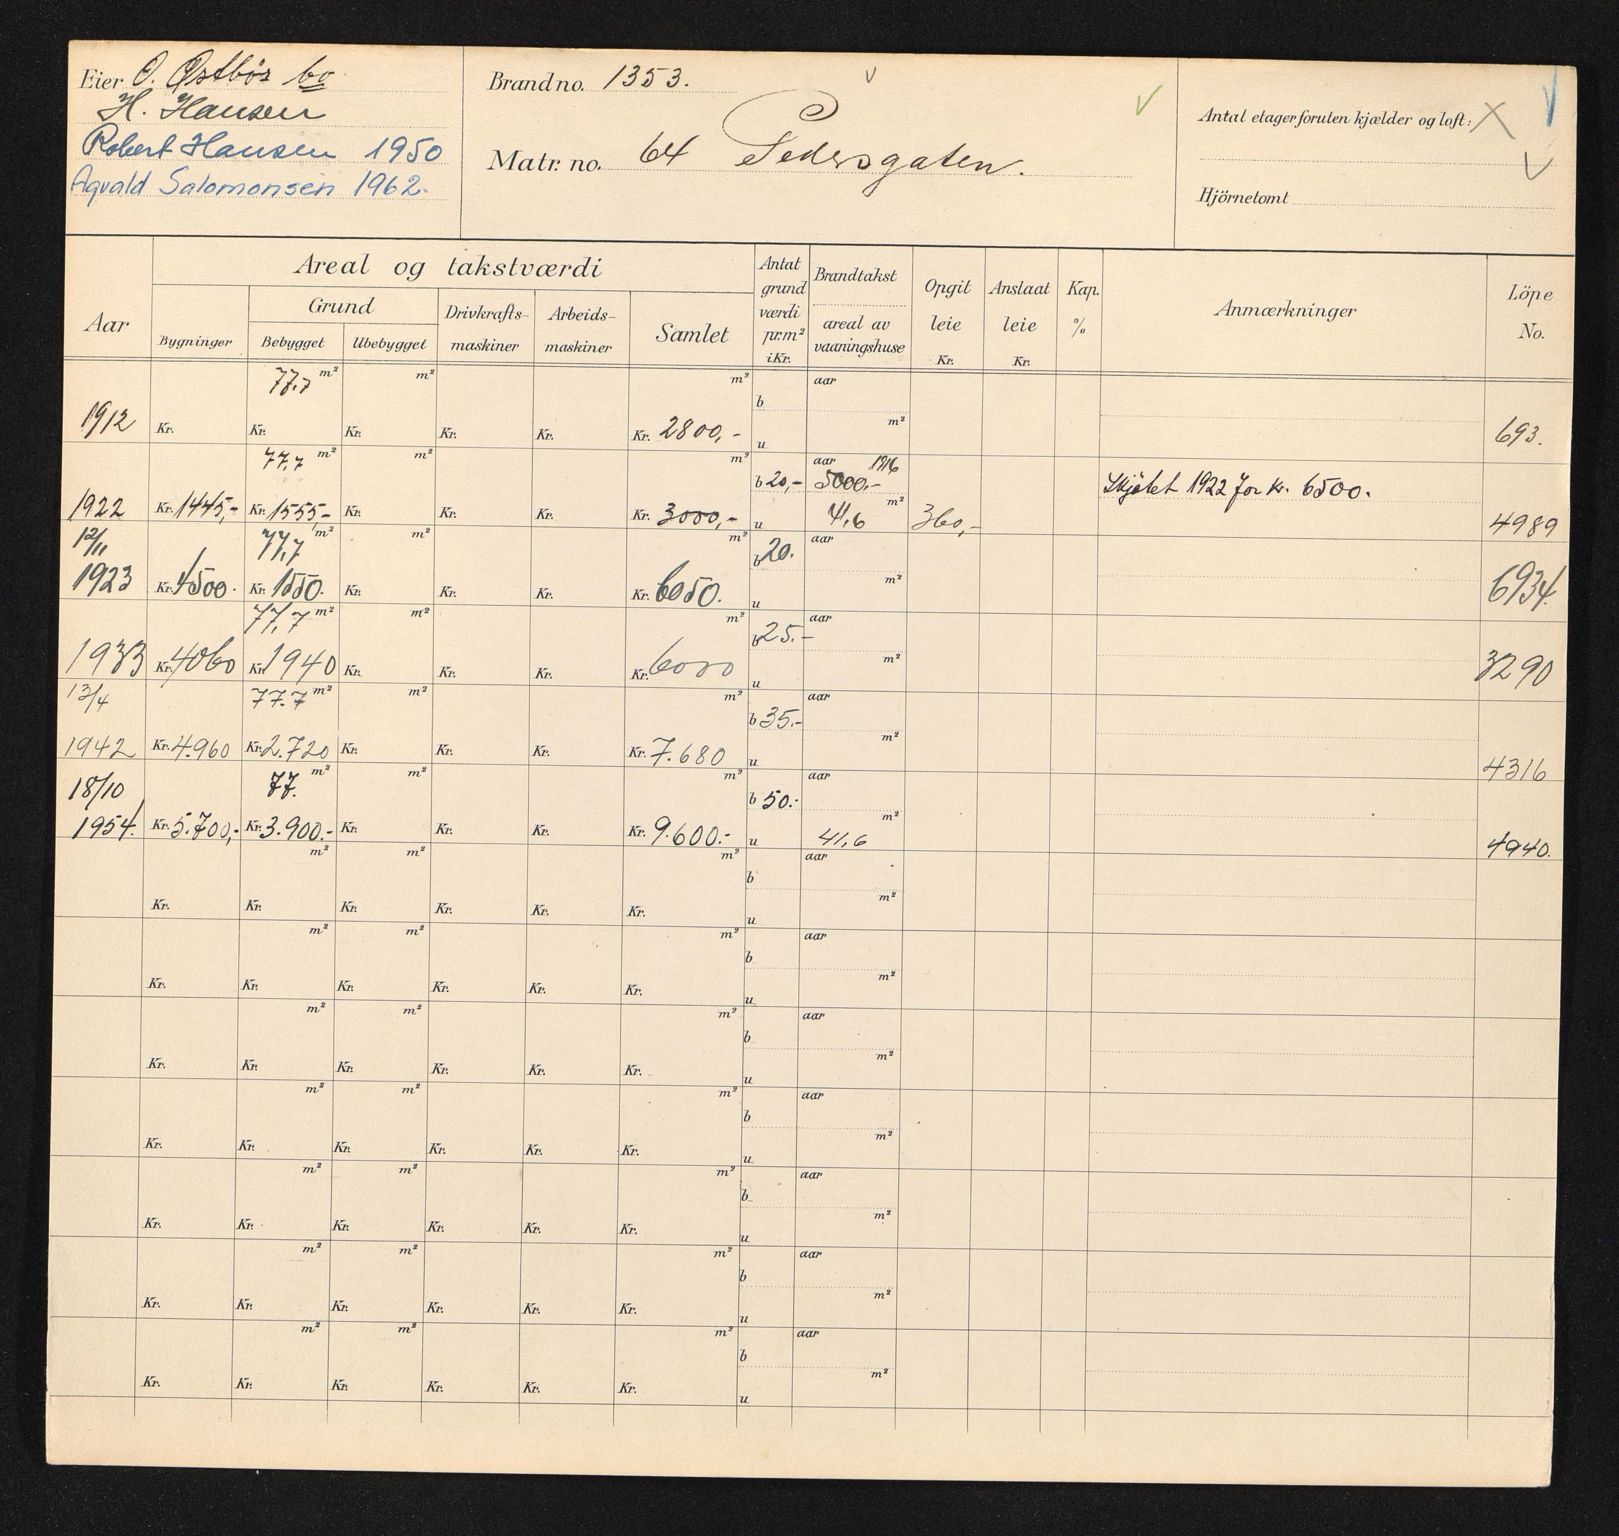 Eier O. Østbös bo
H. Hansen
Robert Hansen 1950
Agvald Salomonsen 1962.
Brand no. 1353.
Matr. no. 64 Pedersgaten.
Antal etager foruten kjælder og loft:
Hjörnetomt
Aar
Areal og takstværdi
Bygninger
Grund
Bebygget
Ubebygget
Drivkrafts-
maskiner
Arbeids-
maskiner
Samlet
Antat
grund
værdi
pr. m²
i Kr.
Brandtakst
areal av
vaaningshuse
Opgit
leie
Kr.
Anslaat
leie
Kr.
Kap.
%
Anmærkninger
Löpe
No.
77,7 m² m² m² aar
b
1912 Kr. Kr. Kr. Kr. Kr. Kr. 2800,- u m² 693.
77,7 m² m² m² aar 1916
b 20,- 5000.- Skjötet 1922 for kr. 6500.
1922 Kr. 1445,- Kr. 1555,- Kr. Kr. Kr. Kr. 3000,- u 41,6 m² 360,- 4989
12/11 77,7 m² m² m² aar
b 20.
1923 Kr. 4500. Kr. 1550. Kr. Kr. Kr. Kr. 6050. u m² 6934.
77,7 m² m² m² aar
b 25.-
1933 Kr. 4060 Kr. 1940 Kr. Kr. Kr. Kr. 6000 u m² 3290
13/4 77.7 m² m² m² aar
b 35.-
1942 Kr. 4.960 Kr. 2.720 Kr. Kr. Kr. Kr. 7.680 u m² 4316
18/10 77. m² m² m² aar
b 50.-
1954. Kr. 5.700,- Kr. 3.900.- Kr. Kr. Kr. Kr. 9.600.- u 41,6 m² 4940.
m² m² m² aar
b
Kr. Kr. Kr. Kr. Kr. Kr. u m²
m² m² m² aar
b
Kr. Kr. Kr. Kr. Kr. Kr. u m²
m² m² m² aar
b
Kr. Kr. Kr. Kr. Kr. Kr. u m²
m² m² m² aar
b
Kr. Kr. Kr. Kr. Kr. Kr. u m²
m² m² m² aar
b
Kr. Kr. Kr. Kr. Kr. Kr. u m²
m² m² m² aar
b
Kr. Kr. Kr. Kr. Kr. Kr. u m²
m² m² m² aar
b
Kr. Kr. Kr. Kr. Kr. Kr. u m²